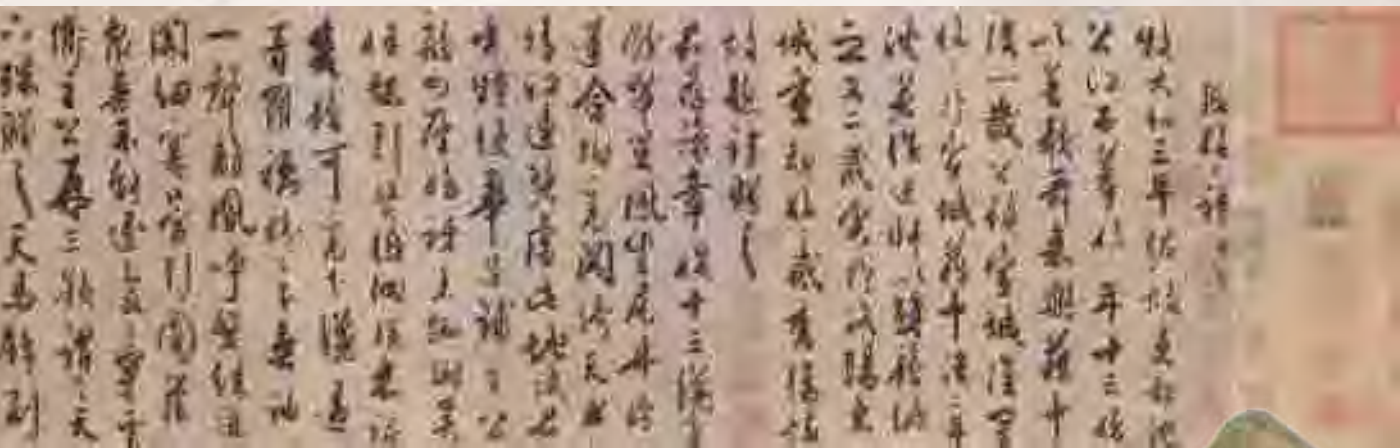 張好好詩
牧大和三年佐故吏部沈
公江西幕好好年十三始
以善歌舞來樂籍中
後一歲公鎮宣城復置
好好宣城籍中後二年
沈著作述師以雙鬟納
之又二歲余於洛陽東
城重覩好好感舊傷懷
故題詩贈之
君為豫章姝十三纔有
餘翠茁鳳生尾丹臉
蓮含跗高閣倚天半
晴江連碧虛此地試君
唱特使華筵鋪主公
顧四座始訝來踟躕吳
娃起引贊低徊映長裾
雙鬟可高下纔過
青羅襦盼盼下垂袖
一聲離鳳呼繁絃迸
關紐塞管引圓蘆
眾音不能逐裊裊穿雲
衢主公再三歎謂言天
下殊贈之天馬錦副